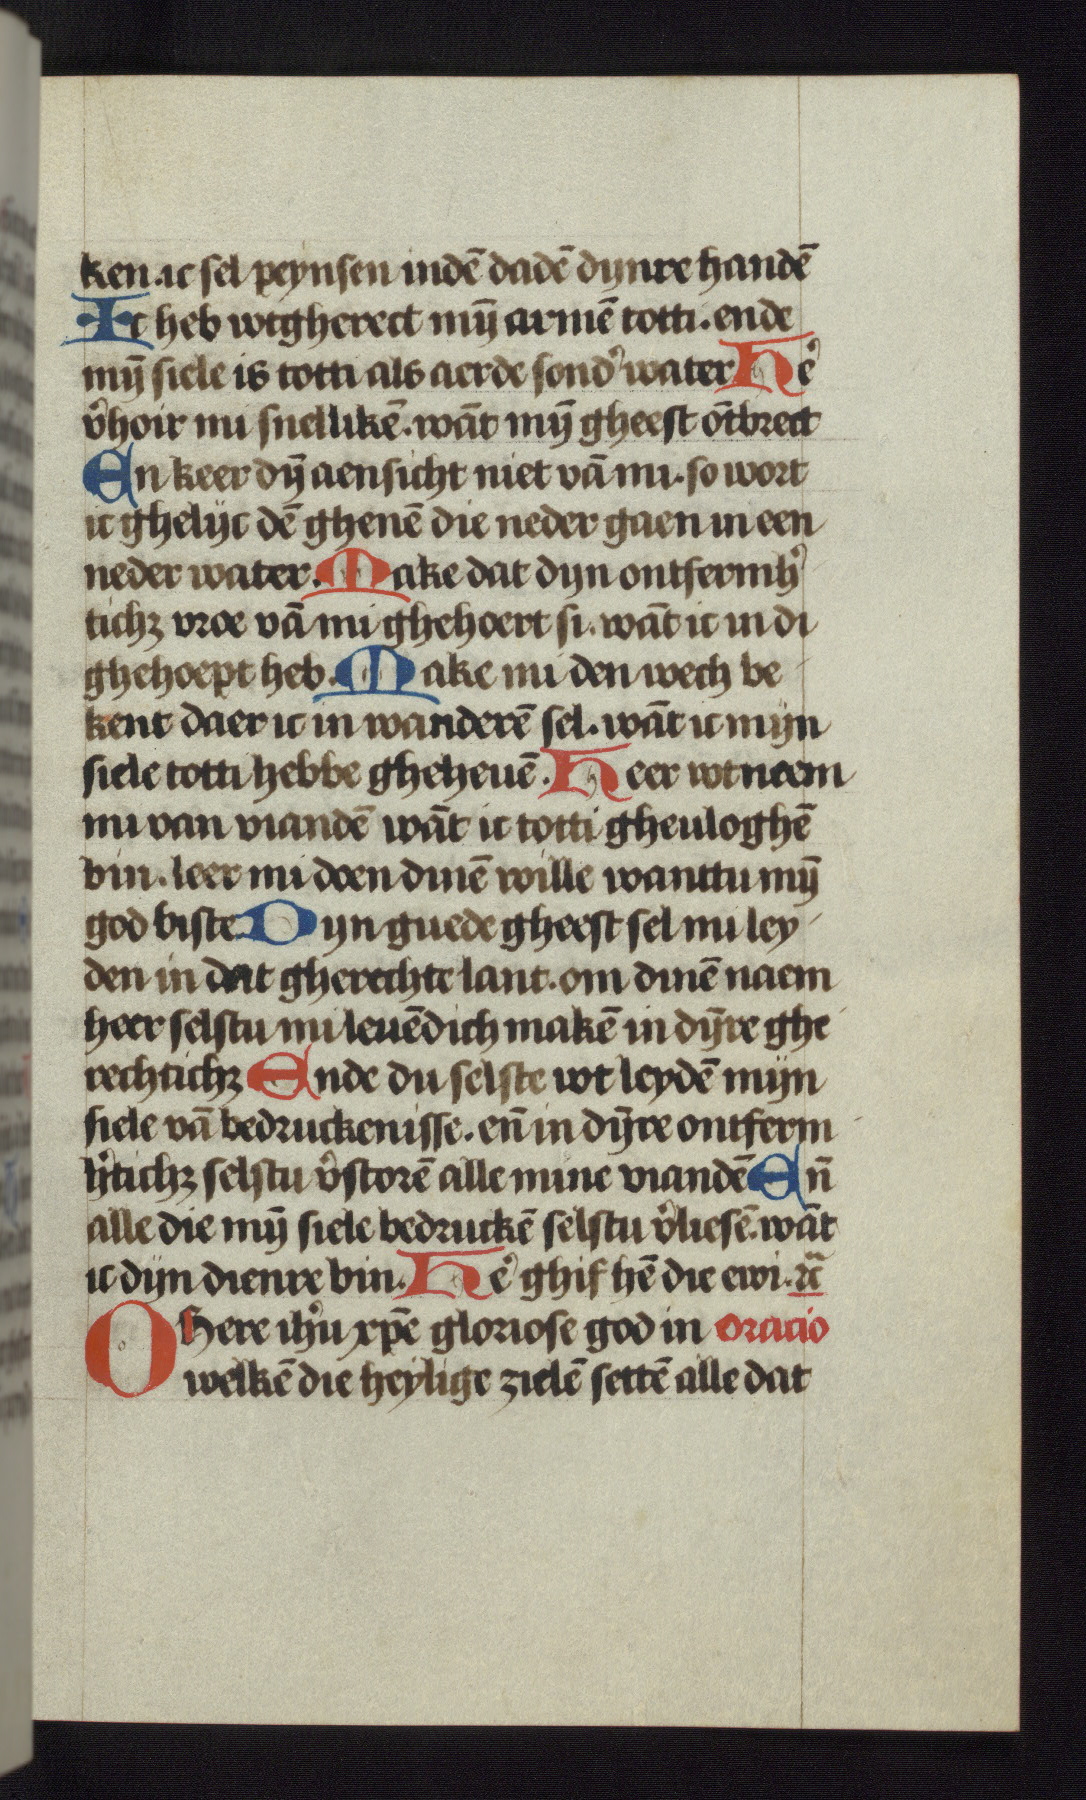 ken. ic sel peynsen indē dadē dynre handē
Ic heb wtgherect mȳ armē totti. ende
mȳ siele is totti als aerde sond᾽ water He᾽
v᾽hoir mi snellikē. wāt mȳ gheest ōtbrect
En keer dȳ aensicht niet vā mi. so wort
ic ghelijc dē ghenē die neder gaen in een
neder water. Make dat dyn ontfermh᾽
tichꝫ vroe vā mi ghehoert si. wāt ic in di
ghehoept heb. Make mi den wech be
kent daer ic in wanderē sel. wāt ic mijn
siele totti hebbe gheheuē. Heer wtneem
mi van viandē wāt ic totti gheuloghē
bin. leer mi doen dinē wille wanttu mȳ
god biste Dyn guede gheest sel mi ley
den in dat gherechte lant. om dinē naem
heer selstu mi leuēdich makē in dȳre ghe
rechtichꝫ Ende du selste wt leydē mijn
siele vā bedruckenisse. en̄ in dȳre ontferm
h᾽tichꝫ selstu v᾽storē alle mine viandē En̄
alle die mȳ siele bedruckē selstu v᾽liesē. wāt
ic dijn dienre bin. He᾽ ghif hē die ewi. aᷓ
O Here ih᾽u xp̄e gloriose god in oracio
welkē die heylige zielē settē alle dat